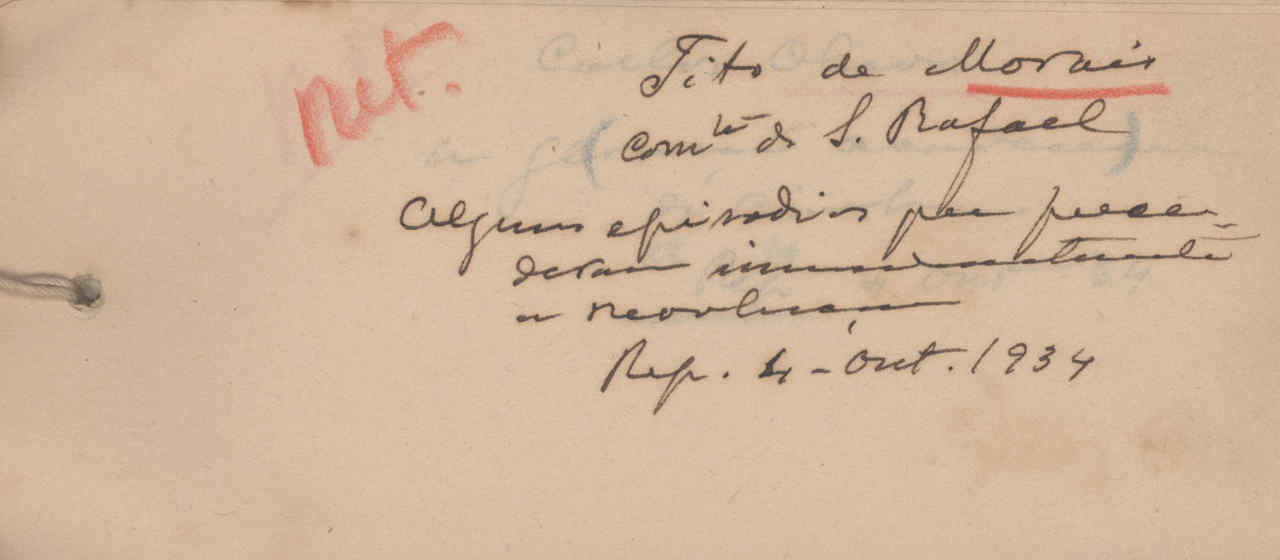 ret.
Tito de Morais
Com.te de S. Rafael
Alguns episodios que prece-
deram immediatamente
a revolução
Rep. 4-Out. 1934